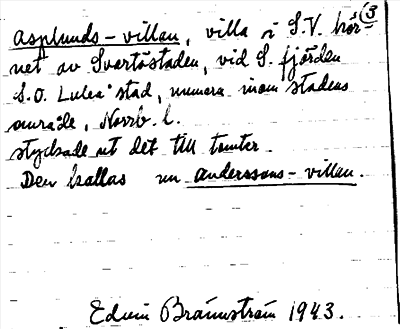 Asplunds-villan, villa i S.V. hör- (3
net av Svartöstaden, vid S. fjärden
S.O. Luleå stad, numera inom stadens
område, Norrb. l.
styckade ut det till tomter.
Den kallas nu Anderssons-villan.
Edvin Brännström 1943.